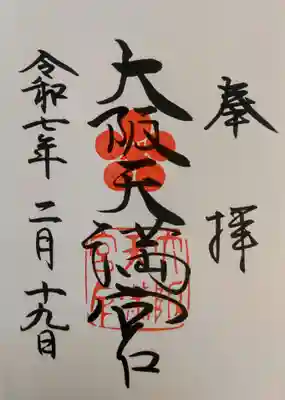 奉拝
大阪天満宮
令和七年 二月 十九日